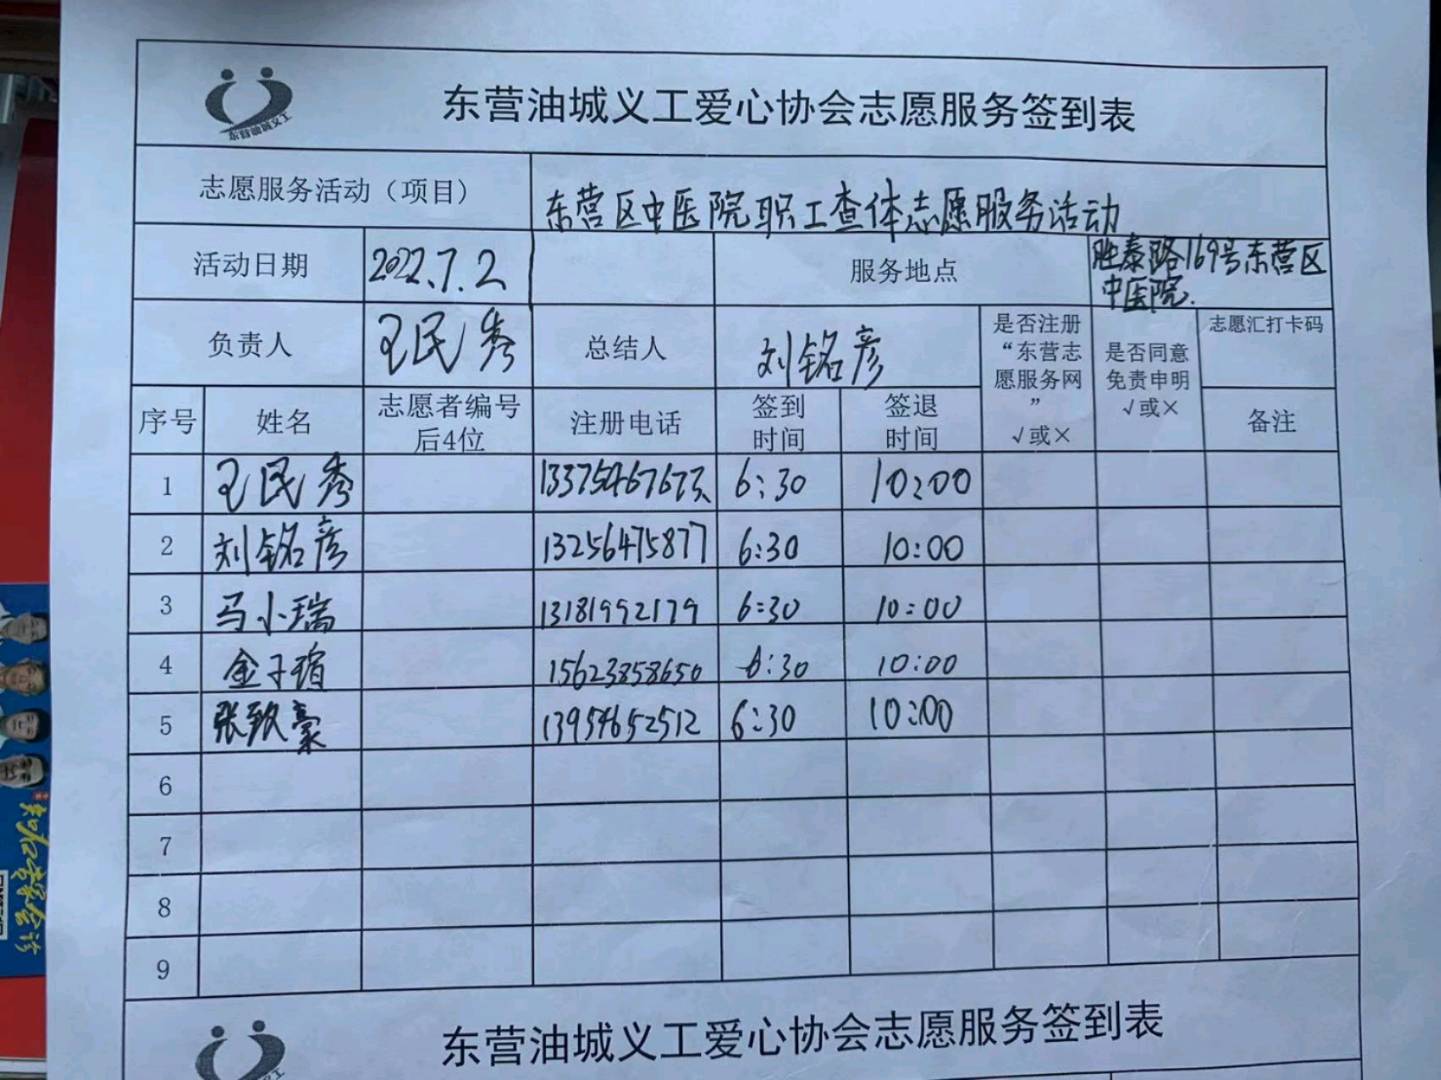 东营油城义工
东营油城义工爱心协会志愿服务签到表
志愿服务活动（项目） 东营区中医院职工查体志愿服务活动
活动日期 2022.7.2 服务地点 胜泰路169号东营区
中医院.
负责人 王民秀 总结人 刘铭彦 是否注册
“东营志
愿服务网
”
√或×
是否同意
免责申明
√或×
志愿汇打卡码
序号 姓名 志愿者编号
后4位
注册电话 签到
时间
签退
时间
备注
1 王民秀 6:30 10:00
2 刘铭彦 13256475877 6:30 10:00
3 马小瑞 13181992179 6:30 10:00
4 金子瑄 15623858650 6:30 10:00
5 张致豪 13954652512 6:30 10:00
6
7
8
9
东营油城义工爱心协会志愿服务签到表